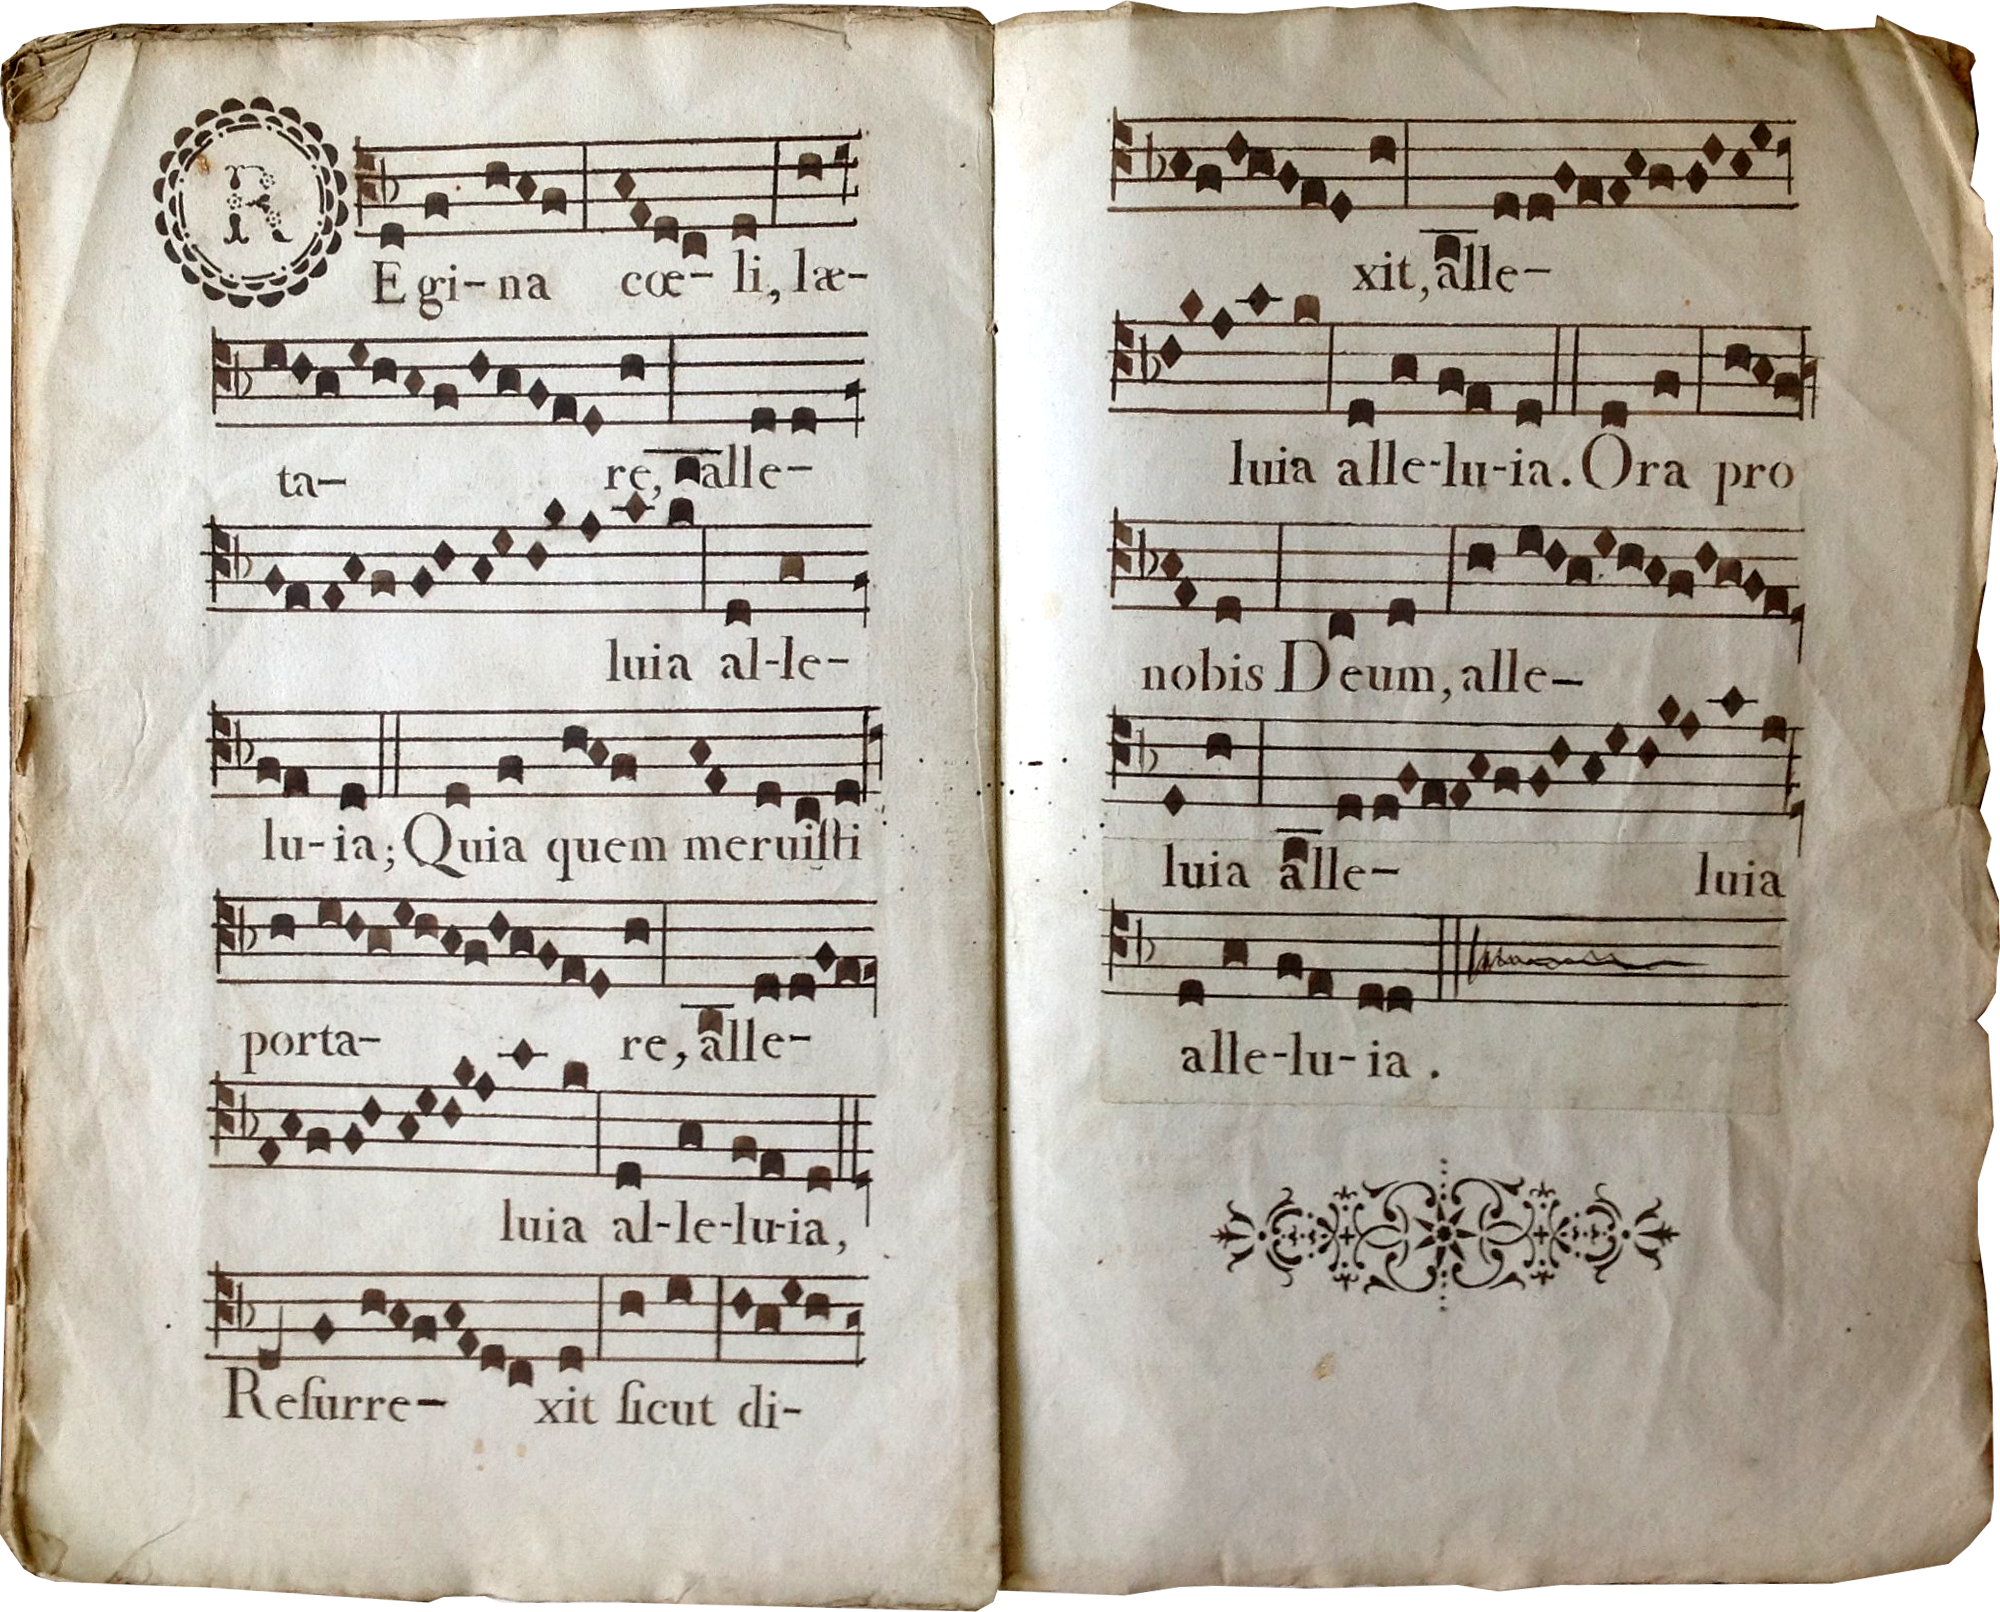 REgi-na cœ-li, læ-
ta- re, alle-
luia al-le-
lu-ia; Quia quem meruiſti
porta- re, alle-
luia al-le-lu-ia,
Reſurre- xit ſicut di-
xit, alle-
luia alle-lu-ia. Ora pro
nobis Deum, alle-
luia alle- luia
alle-lu-ia.